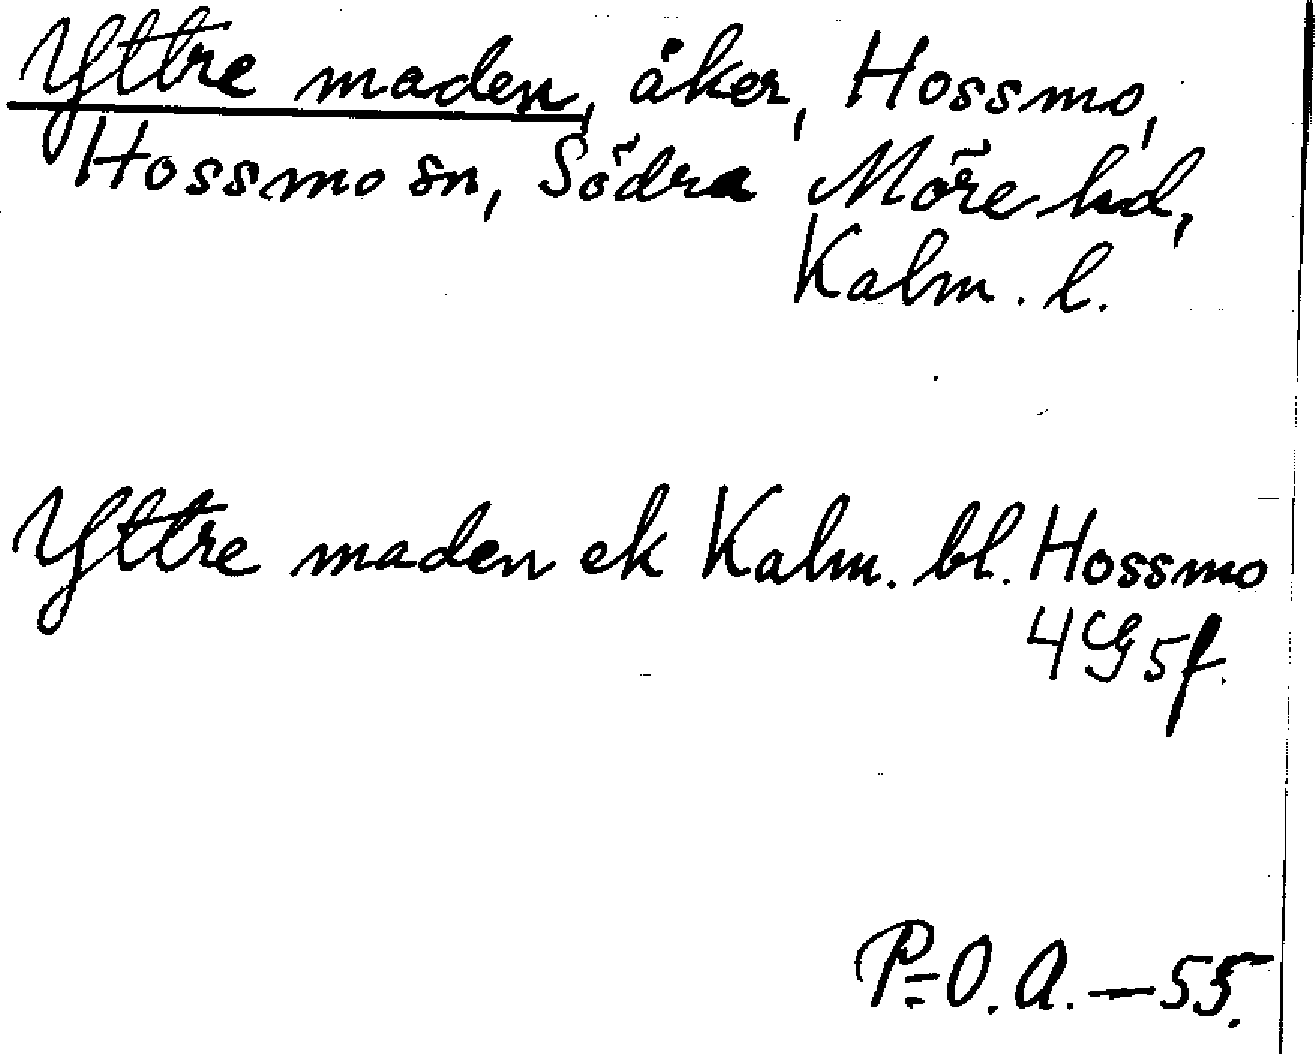 Yttre maden, åker, Hossmo,
Hossmo sn, Södra Möre hd,
Kalm. l.
Yttre maden ek Kalm. bl. Hossmo
4G5f.
P-O.A.—55.